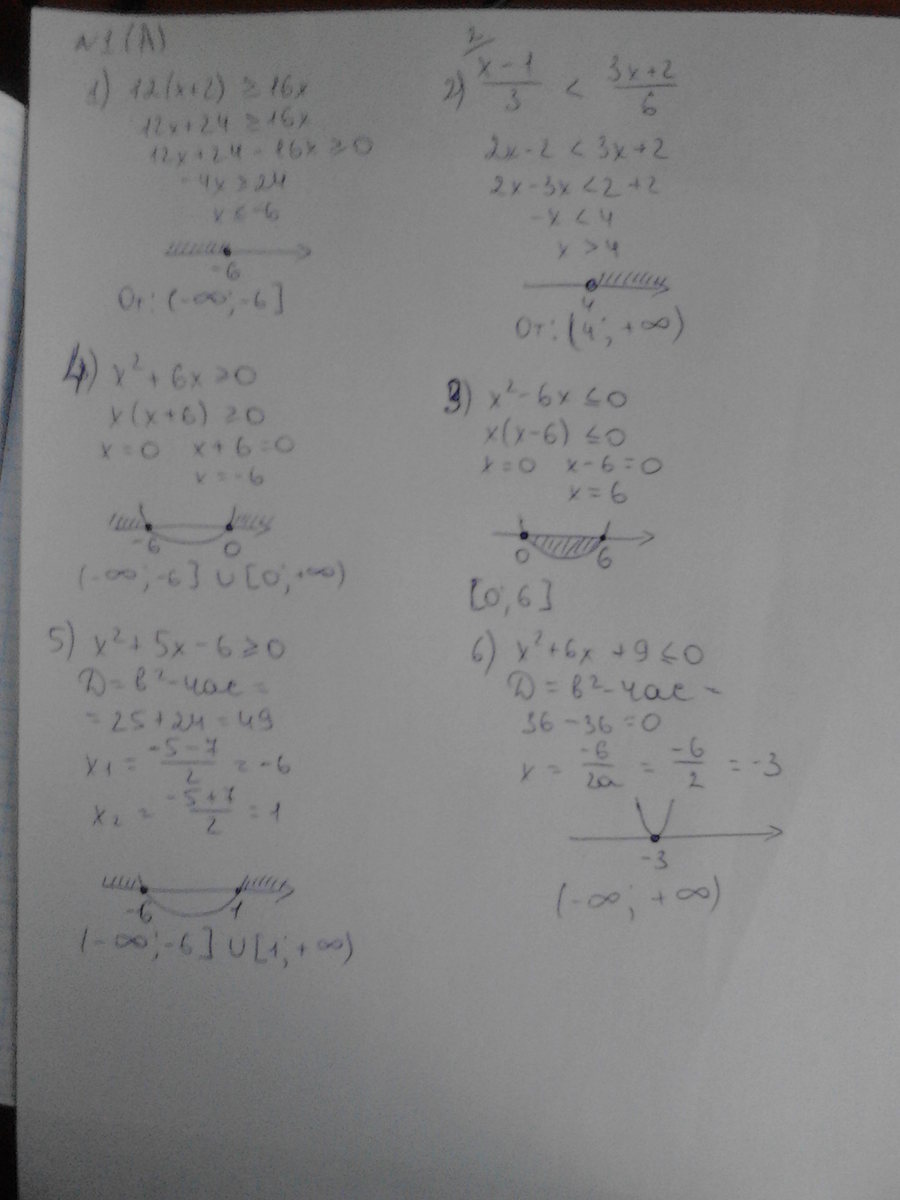 №1 (А)
1) 12(x+2) ≥ 16x
12x+24 ≥ 16x
12x+24 - 16x ≥ 0
-4x ≥ 24
x ≤ -6
-6
От: (-∞; -6]
2
2) x-1/3 < 3x+2/6
2x-2 < 3x+2
2x-3x < 2+2
-x < 4
x > 4
4
От: (4; +∞)
4) x² + 6x ≥ 0
x(x+6) ≥ 0
x=0 x+6=0
x=-6
-6 0
(-∞; -6] ∪ [0; +∞)
3) x² - 6x ≤ 0
x(x-6) ≤ 0
x=0 x-6=0
x=6
0 6
[0; 6]
5) x² + 5x - 6 ≥ 0
D = в² - 4ac =
= 25+24 = 49
x₁ = -5-7/2 = -6
x₂ = -5+7/2 = 1
-6 1
(-∞; -6] ∪ [1; +∞)
6) x² + 6x + 9 ≤ 0
D = в² - 4ac =
36 - 36 = 0
x = -6/2a = -6/2 = -3
-3
(-∞; +∞)